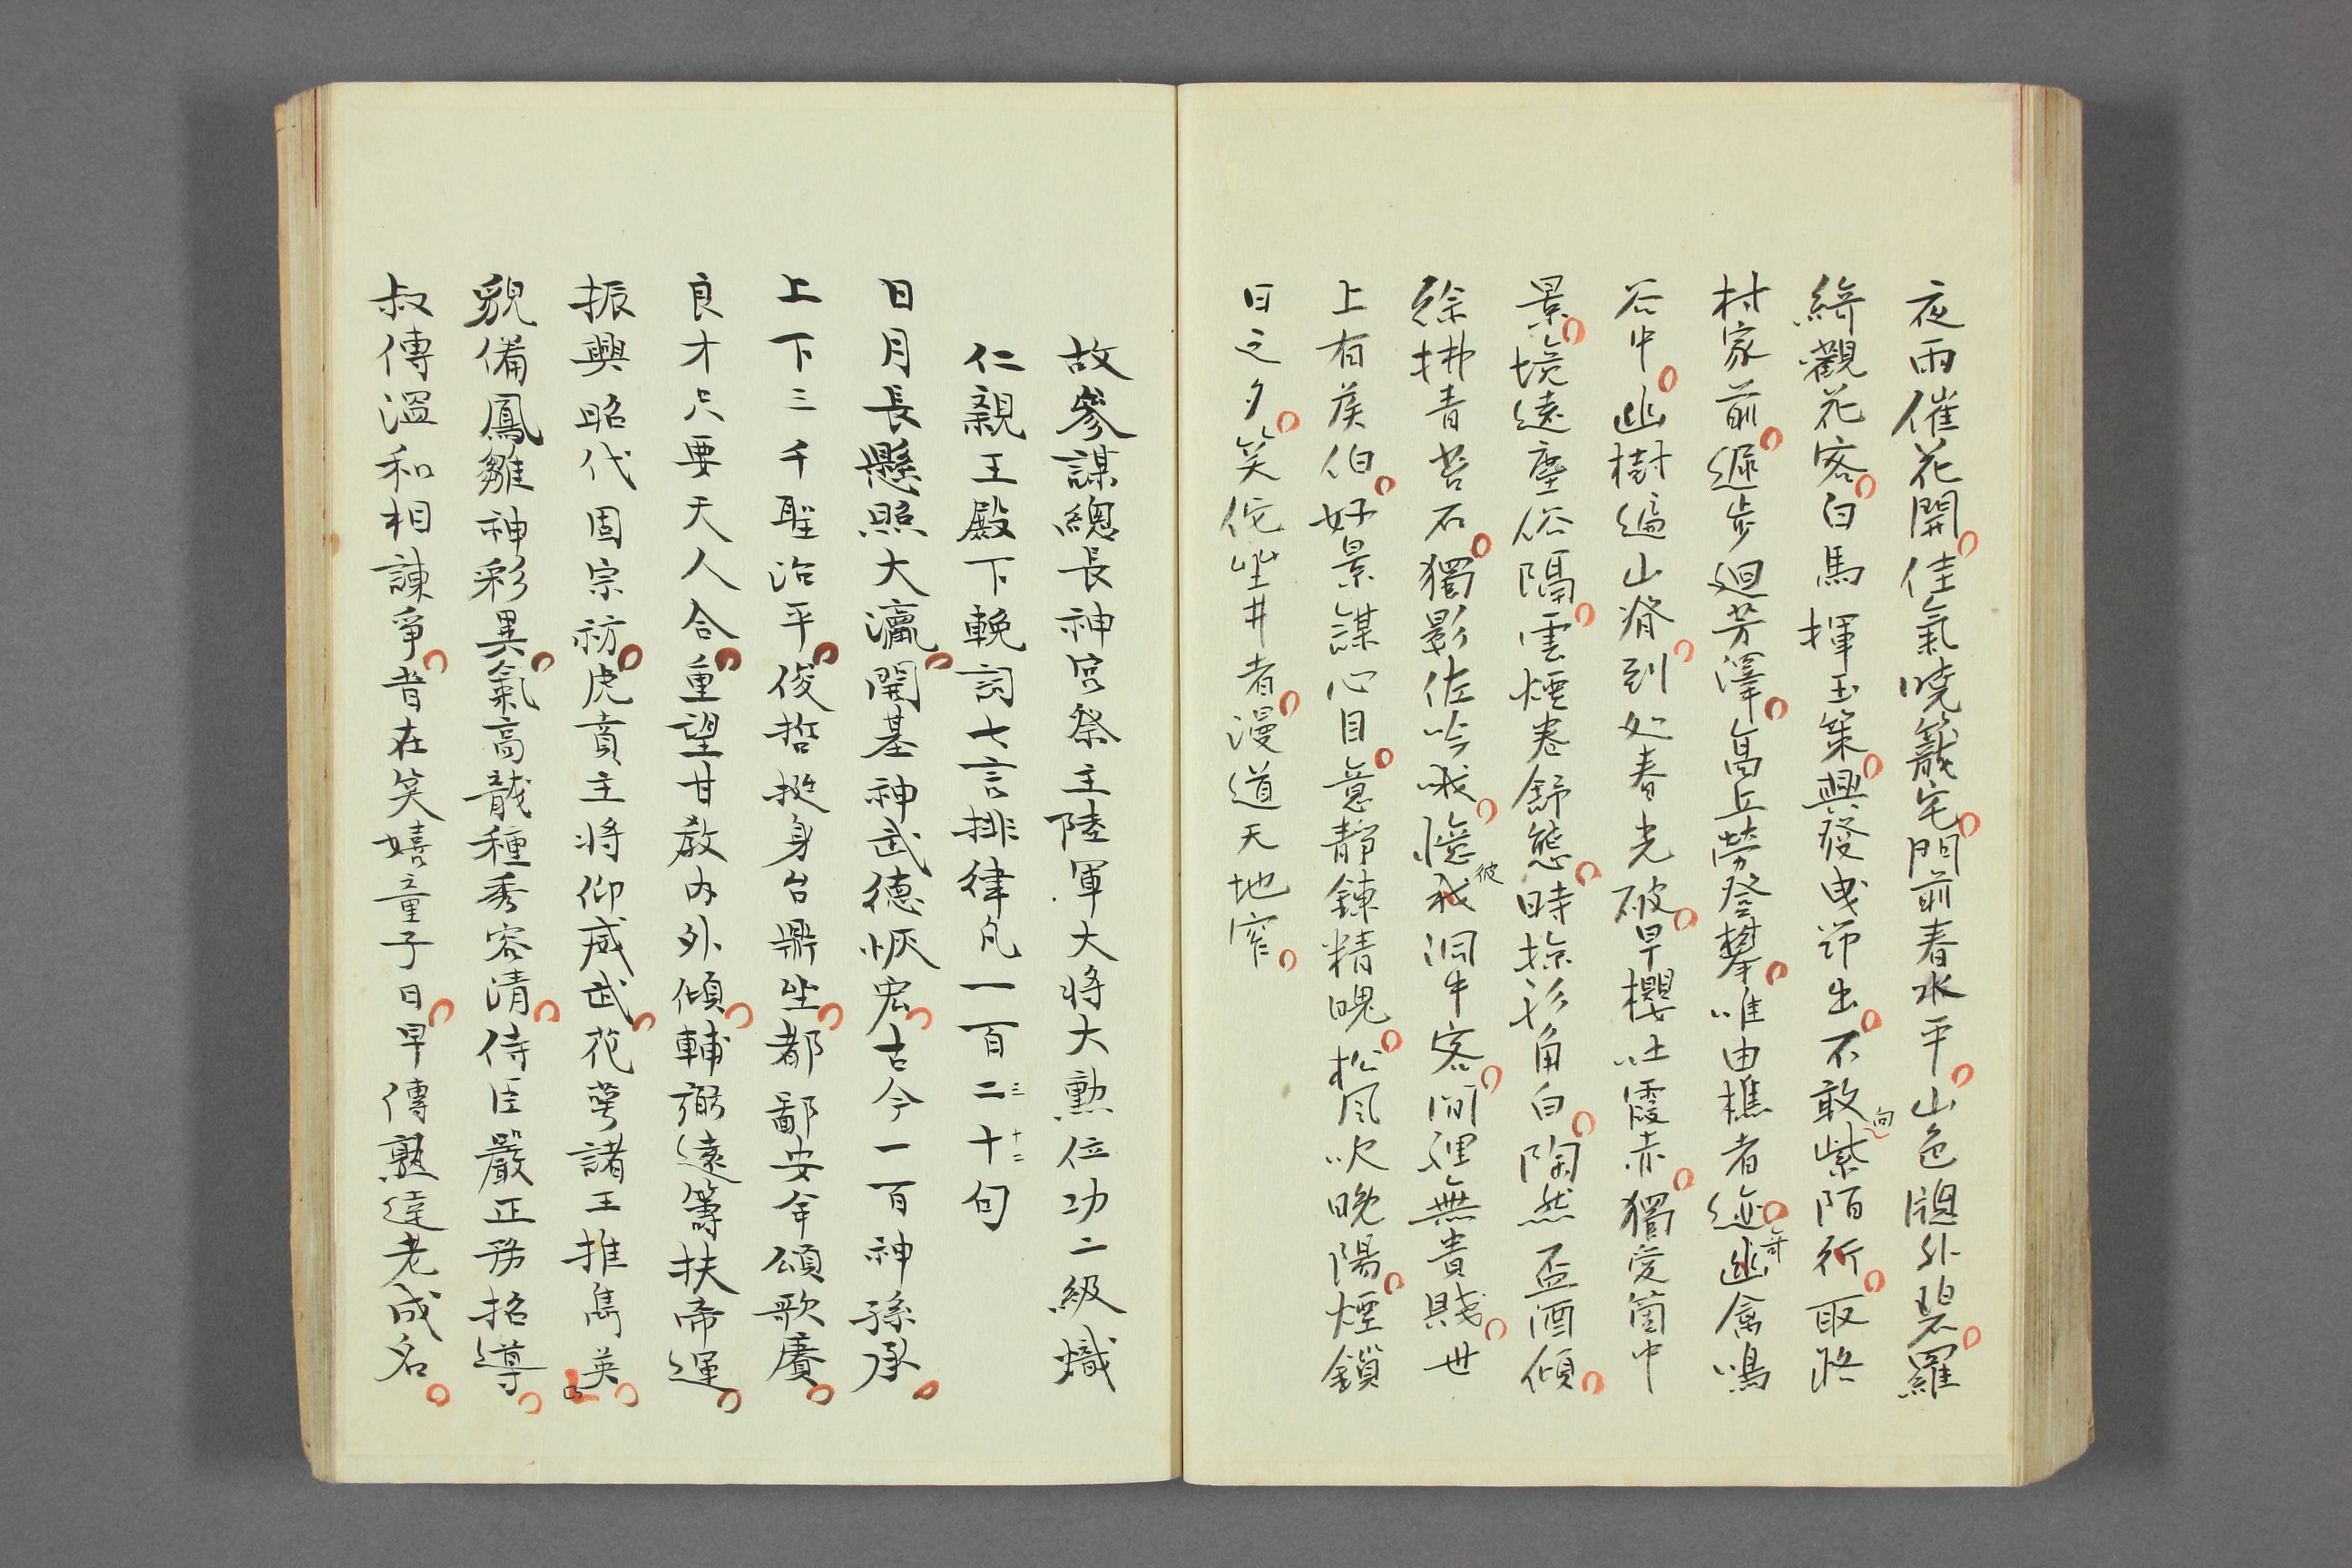 夜雨催花開佳氣曉籠宅門前春水平山色牕外碧羅
綺觀花客白馬揮玉策興發曳笻出不敢向紫陌行取路
村家前遲步廻芳澤高丘勞登攀唯由樵者迹幽禽鳴
谷中幽樹遍山脊到处春光破早櫻吐霞赤獨愛箇中
景境遠塵俗隔雲煙卷舒態時掠衫角白陶然盃酒傾
徐拂青苔石獨影佐吟哦憶我彼洞中客間裡無貴賤世
上有侯伯好景謀心目意靜鍊精魄松風吹晚陽煙鎖
日之夕笑佗坐井者漫道天地窄
故參謀總長神宮祭主陸軍大將大勲位功二級熾
仁親王殿下輓詞七言排律凡一百二十句
三十二
日月長懸照大瀛開基神武德恢宏古今一百神孫承
上下三千聖治平俊哲挺身台鼎坐都鄙安牟頌歌賡
良才只要天人合重望甘教内外傾輔弼遠籌扶帝運
振興昭代固宗祊虎賁主將仰威武花萼諸王推雋英
貌備鳳雛神彩異氣高龍種秀容清侍臣嚴正務招導
叔傅溫和相諫爭昔在笑嬉童子日早傳熟達老成名